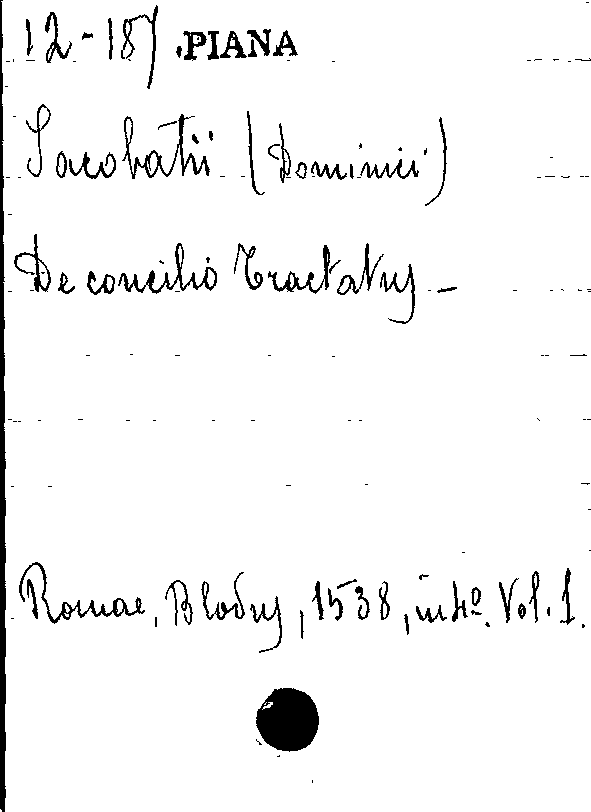 12-187 PIANA
Jacobatii (Dominici)
De concilio Tractatus -
Romae, Bladus, 1538, in 4º. Vol. 1.